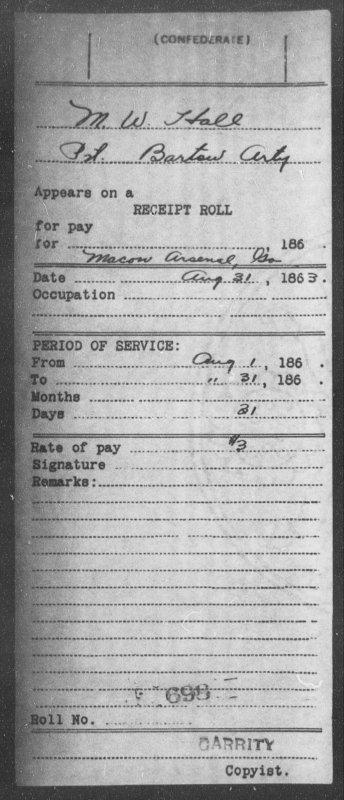 (CONFEDERATE)
M. W. Hall
Pvt. Bartow Arty
Appears on a
RECEIPT ROLL
for pay
for , 186 .
Macon Arsenal, Ga
Date Aug 31, 1863.
Occupation
PERIOD OF SERVICE:
From Aug 1, 186 .
To " 31, 186 .
Months
Days 31
Rate of pay $3
Signature
Remarks:
698
Roll No.
GARRITY
Copyist.